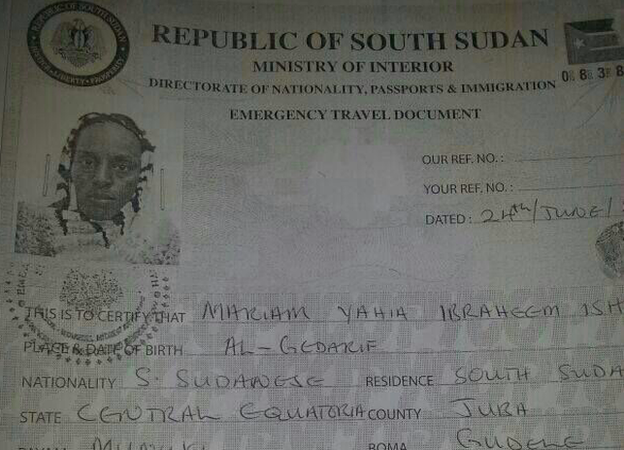 REPUBLIC OF SOUTH SUDAN
MINISTRY OF INTERIOR
DIRECTORATE OF NATIONALITY, PASSPORTS & IMMIGRATION
EMERGENCY TRAVEL DOCUMENT
OUR REF. NO.:
YOUR REF. NO.:
DATED: 24th/JUNE/
THIS IS TO CERTIFY THAT MARIAM YAHIA IBRAHEEM ISH
PLACE & DATE OF BIRTH AL-GEDARIF
NATIONALITY S. SUDANESE RESIDENCE SOUTH SUDA
STATE CENTRAL EQUATORIA COUNTY JUBA
BOMA GUDELE